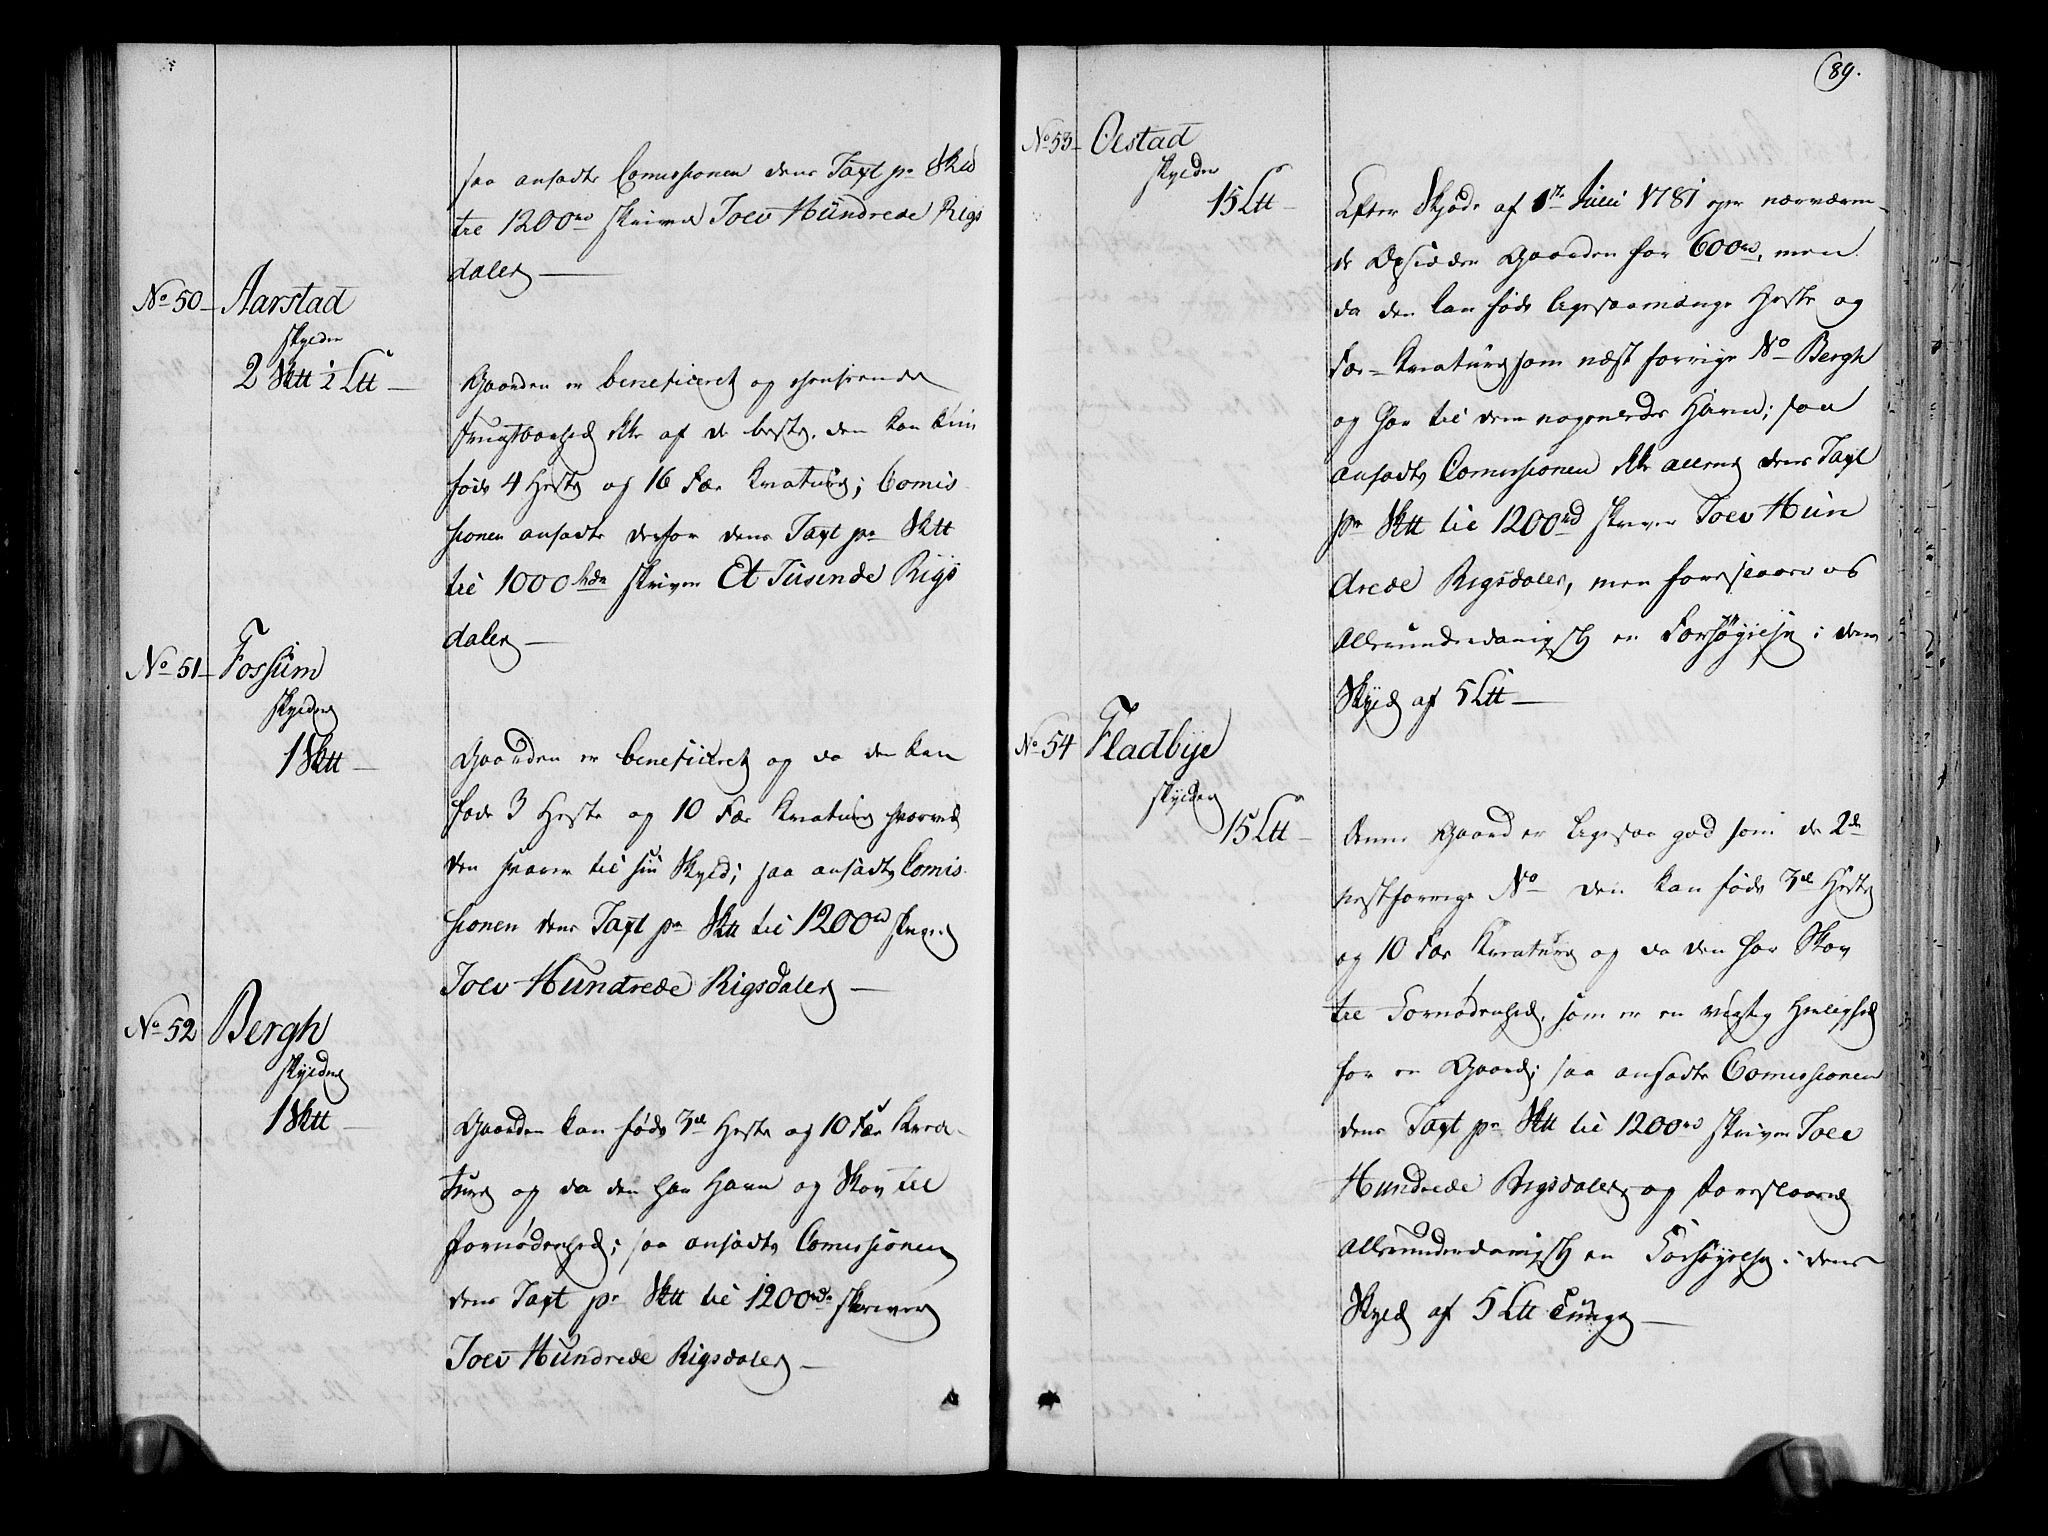 saa ansadte Comissionen dens Taxt pr Skd
til 1200rd skriver Tolv Hundrede Rigs
daler —
No 50 – Aarstad
skylder
2 Sktt ½ Ltt —
Gaarden er beneficeret og henseende
frugtbarhed ikke af de beste, den kan kun
föde 4 Heste og 16 Fæe Kreature; Comis
sionen ansadte derfor dens Taxt pr Sktt
til 1000 rdr skriver Et Tusende Rigs
daler —
No 51 – Fossum
skylder
1 Sktt —
Gaarden er beneficeret og da den kan
föde 3 Heste og 10 Fæe Kreature hvorved
den svarer til sin Skyld; saa ansadte Comis
sionen dens Taxt pr Sktt til 1200rd skriver
Tolv Hundrede Rigsdaler —
No 52 Bergh
skylder
1 Sktt —
Gaarden kan föde 3de Heste og 10 Fæe Krea
ture og da den har Havn og Skov til
Fornödenhed; saa ansadte Comissionen
dens Taxt pr Sktt til 1200rdr skriver
Tolv Hundrede Rigsdaler —
89.
No 53 – Olstad
skylder
15 Ltt —
Efter Skjöde af 1te Juli 1781 ejer nærværen
de Opsidder Gaarden for 600rd, men
da den kan föde ligesaamange Heste og
Fæe-Kreature som næst forrige No Bergh
og har til dem nogenledes Havn; saa
ansadte Comissionen ikke allene dens Taxt
pr Sktt til 1200rd skriver Tolv Hun
drede Rigsdaler, men foreslaaer og
Allerunderdanigst en Forhöyelse i dens
Skyld af 5 Ltt —
No 54 Fladbye
skylder
15 Ltt —
Denne Gaard er ligesaa god som de 2de
nestforrige No den kan föde 3de Heste
og 10 Fæe Kreature og da den har Skov
til Fornödenhed, som er en vigtig Herlighed
for en Gaard; saa ansadte Comissionen
dens Taxt pr Sktt til 1200rd skriver Tolv
Hundrede Rigsdaler og foreslaaer
Allerunderdanigst en Forhöyelse i dens
Skyld af 5 Ltt Tunge —